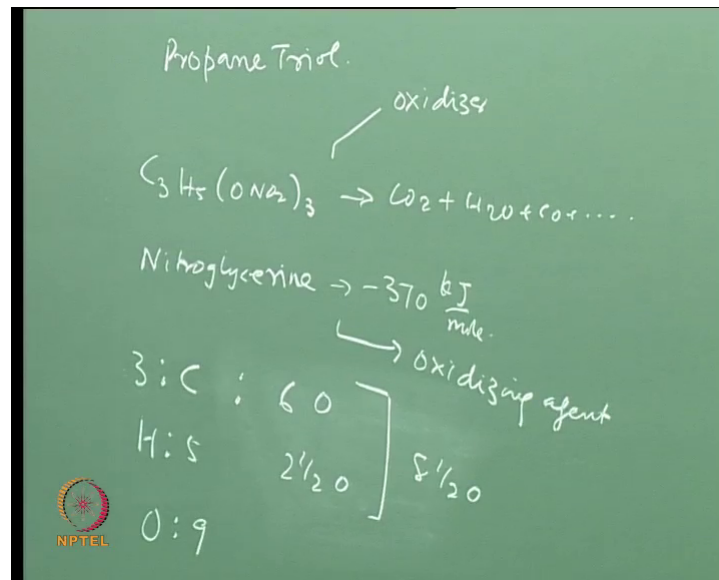 Propane Triol.
oxidizer
C3H5(ONO2)3 → CO2 + H2O + CO + .....
Nitroglycerine → -370 kJ/mole.
→ oxidizing agent
3 : C : 6 O
H : 5 2 1/2 O ] 8 1/2 O
O : 9
NPTEL